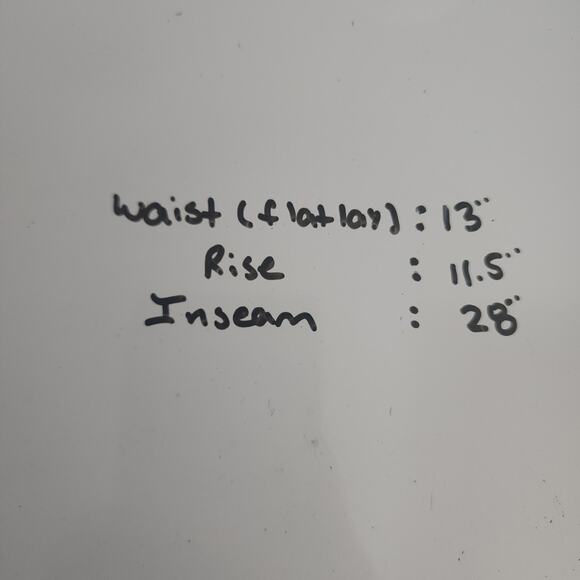 Waist (flatlay) : 13"
Rise : 11.5"
Inseam : 28"